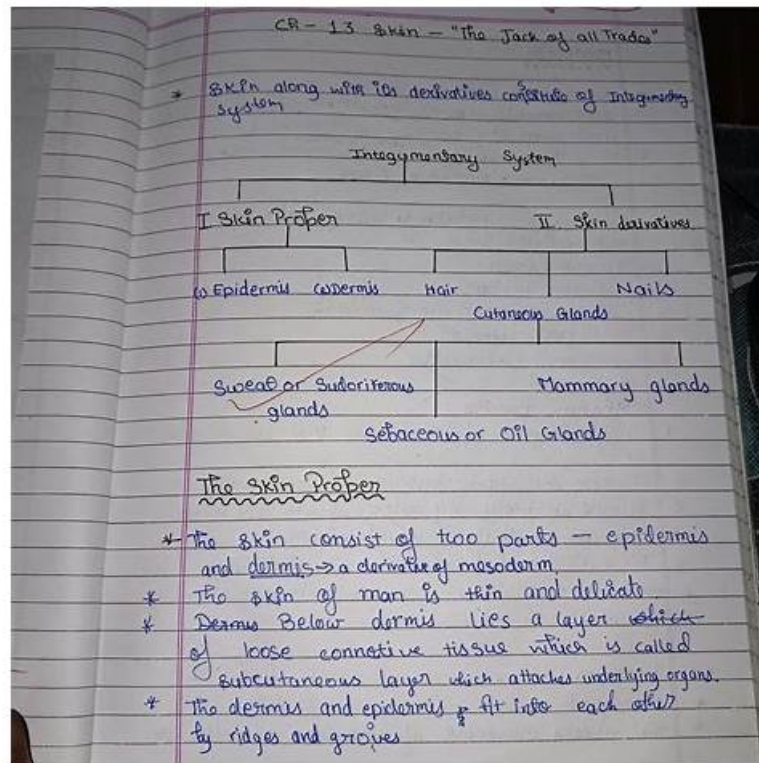 CH - 13 Skin - "The Jack of all Trades"
* Skin along with its derivatives constitute of Integumentary
system
Integumentary System
I Skin Proper II. Skin derivatives
(i) Epidermis (ii) Dermis Hair Nails
Cutaneous Glands
Sweat or Sudoriferous Mammary glands
glands
Sebaceous or Oil Glands
The Skin Proper
* The skin consist of two parts - epidermis
and dermis → a derivative of mesoderm.
* The skin of man is thin and delicate
* Dermis Below dermis lies a layer which
of loose connetive tissue which is called
subcutaneous layer which attaches underlying organs.
* The dermis and epidermis fit into each other
by ridges and groves